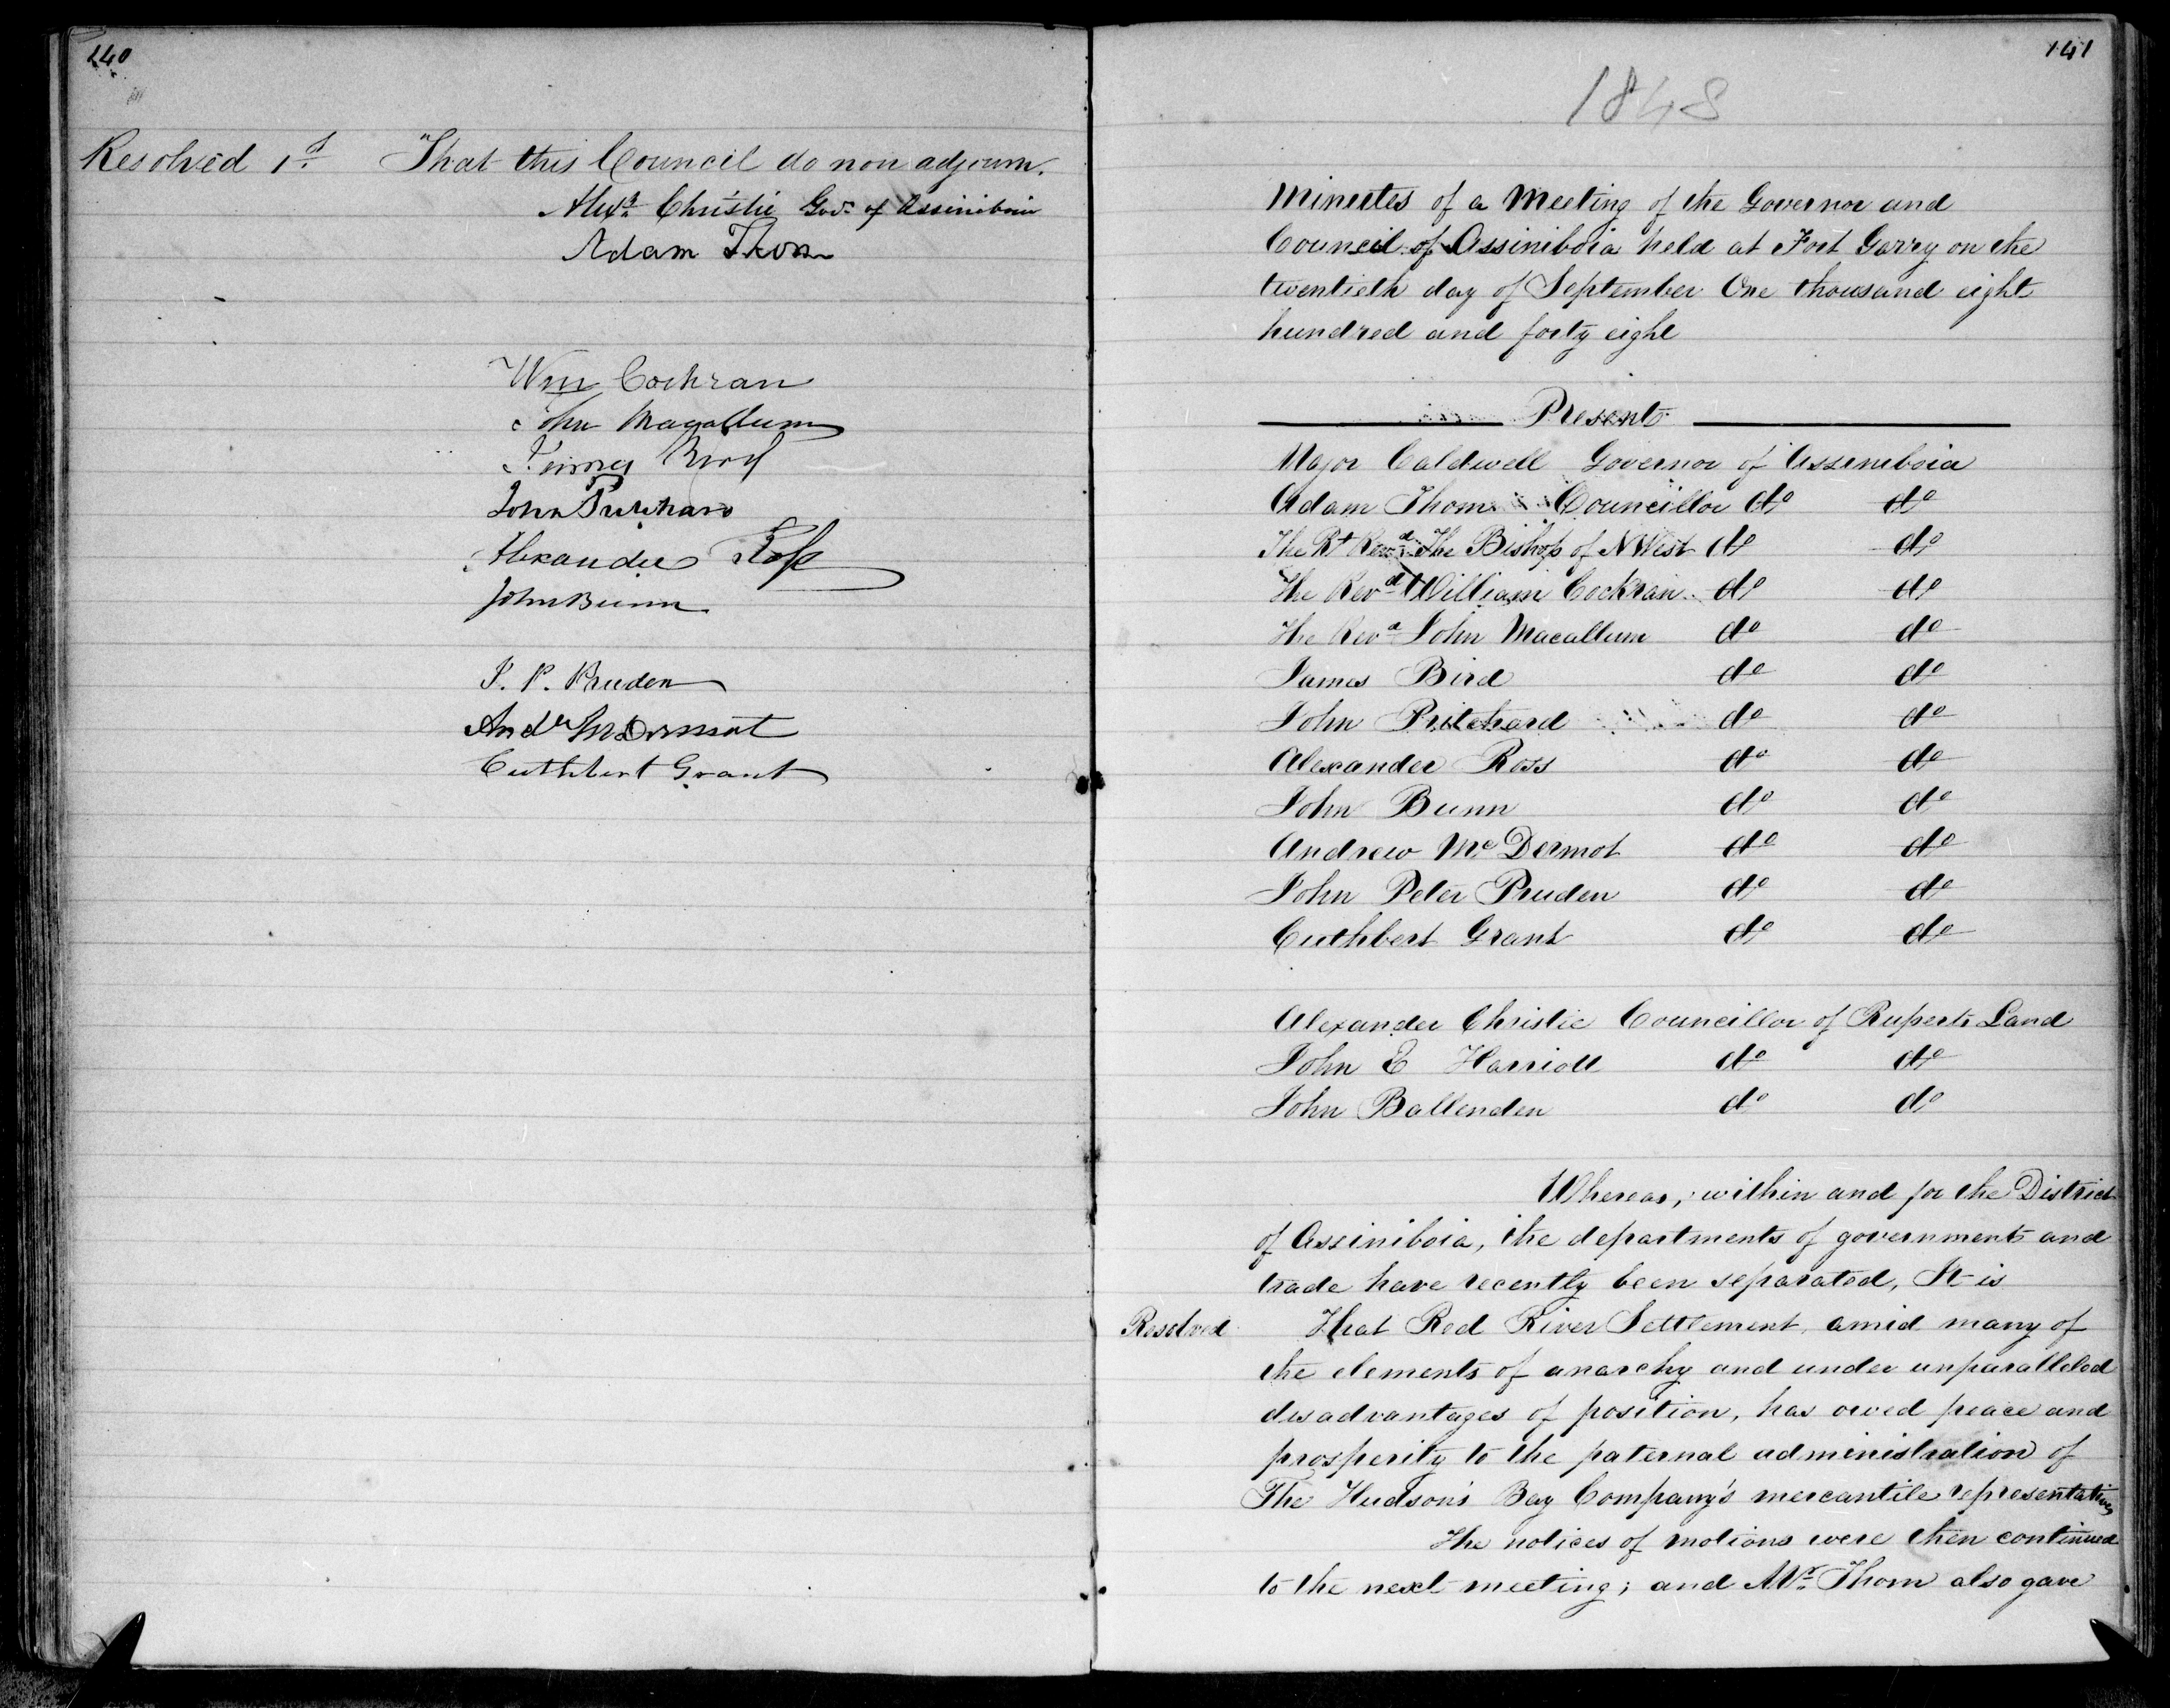 140
Resolved 1st That this Council do now adjourn.
Alexr Christie Govr of Assiniboia
Adam Thom
Wm Cockran
John Macallum
James Bird
John Pritchard
Alexander Ross
John Bunn
J. P. Pruden
Andw McDermot
Cuthbert Grant
141
1848
Minutes of a Meeting of the Governor and
Council of Assiniboia held at Fort Garry on the
twentieth day of September One thousand eight
hundred and forty eight
Present
Major Caldwell Governor of Assiniboia
Adam Thom Councillor do do
The Rt Revd The Bishop of N West do do
The Revd William Cockran do do
The Revd John Macallum do do
James Bird do do
John Pritchard do do
Alexander Ross do do
John Bunn do do
Andrew McDermot do do
John Peter Pruden do do
Cuthbert Grant do do
Alexander Christie Councillor of Ruperts Land
John E Harriott do do
John Ballenden do do
Whereas, within and for the District
of Assiniboia, the departments of government and
trade have recently been separated, It is
Resolved That Red River Settlement, amid many of
the elements of anarchy and under unparalleled
disadvantages of position, has owed peace and
prosperity to the paternal administration of
The Hudson's Bay Company's mercantile representatives
The notices of motions were then continued
to the next meeting; and Mr Thom also gave